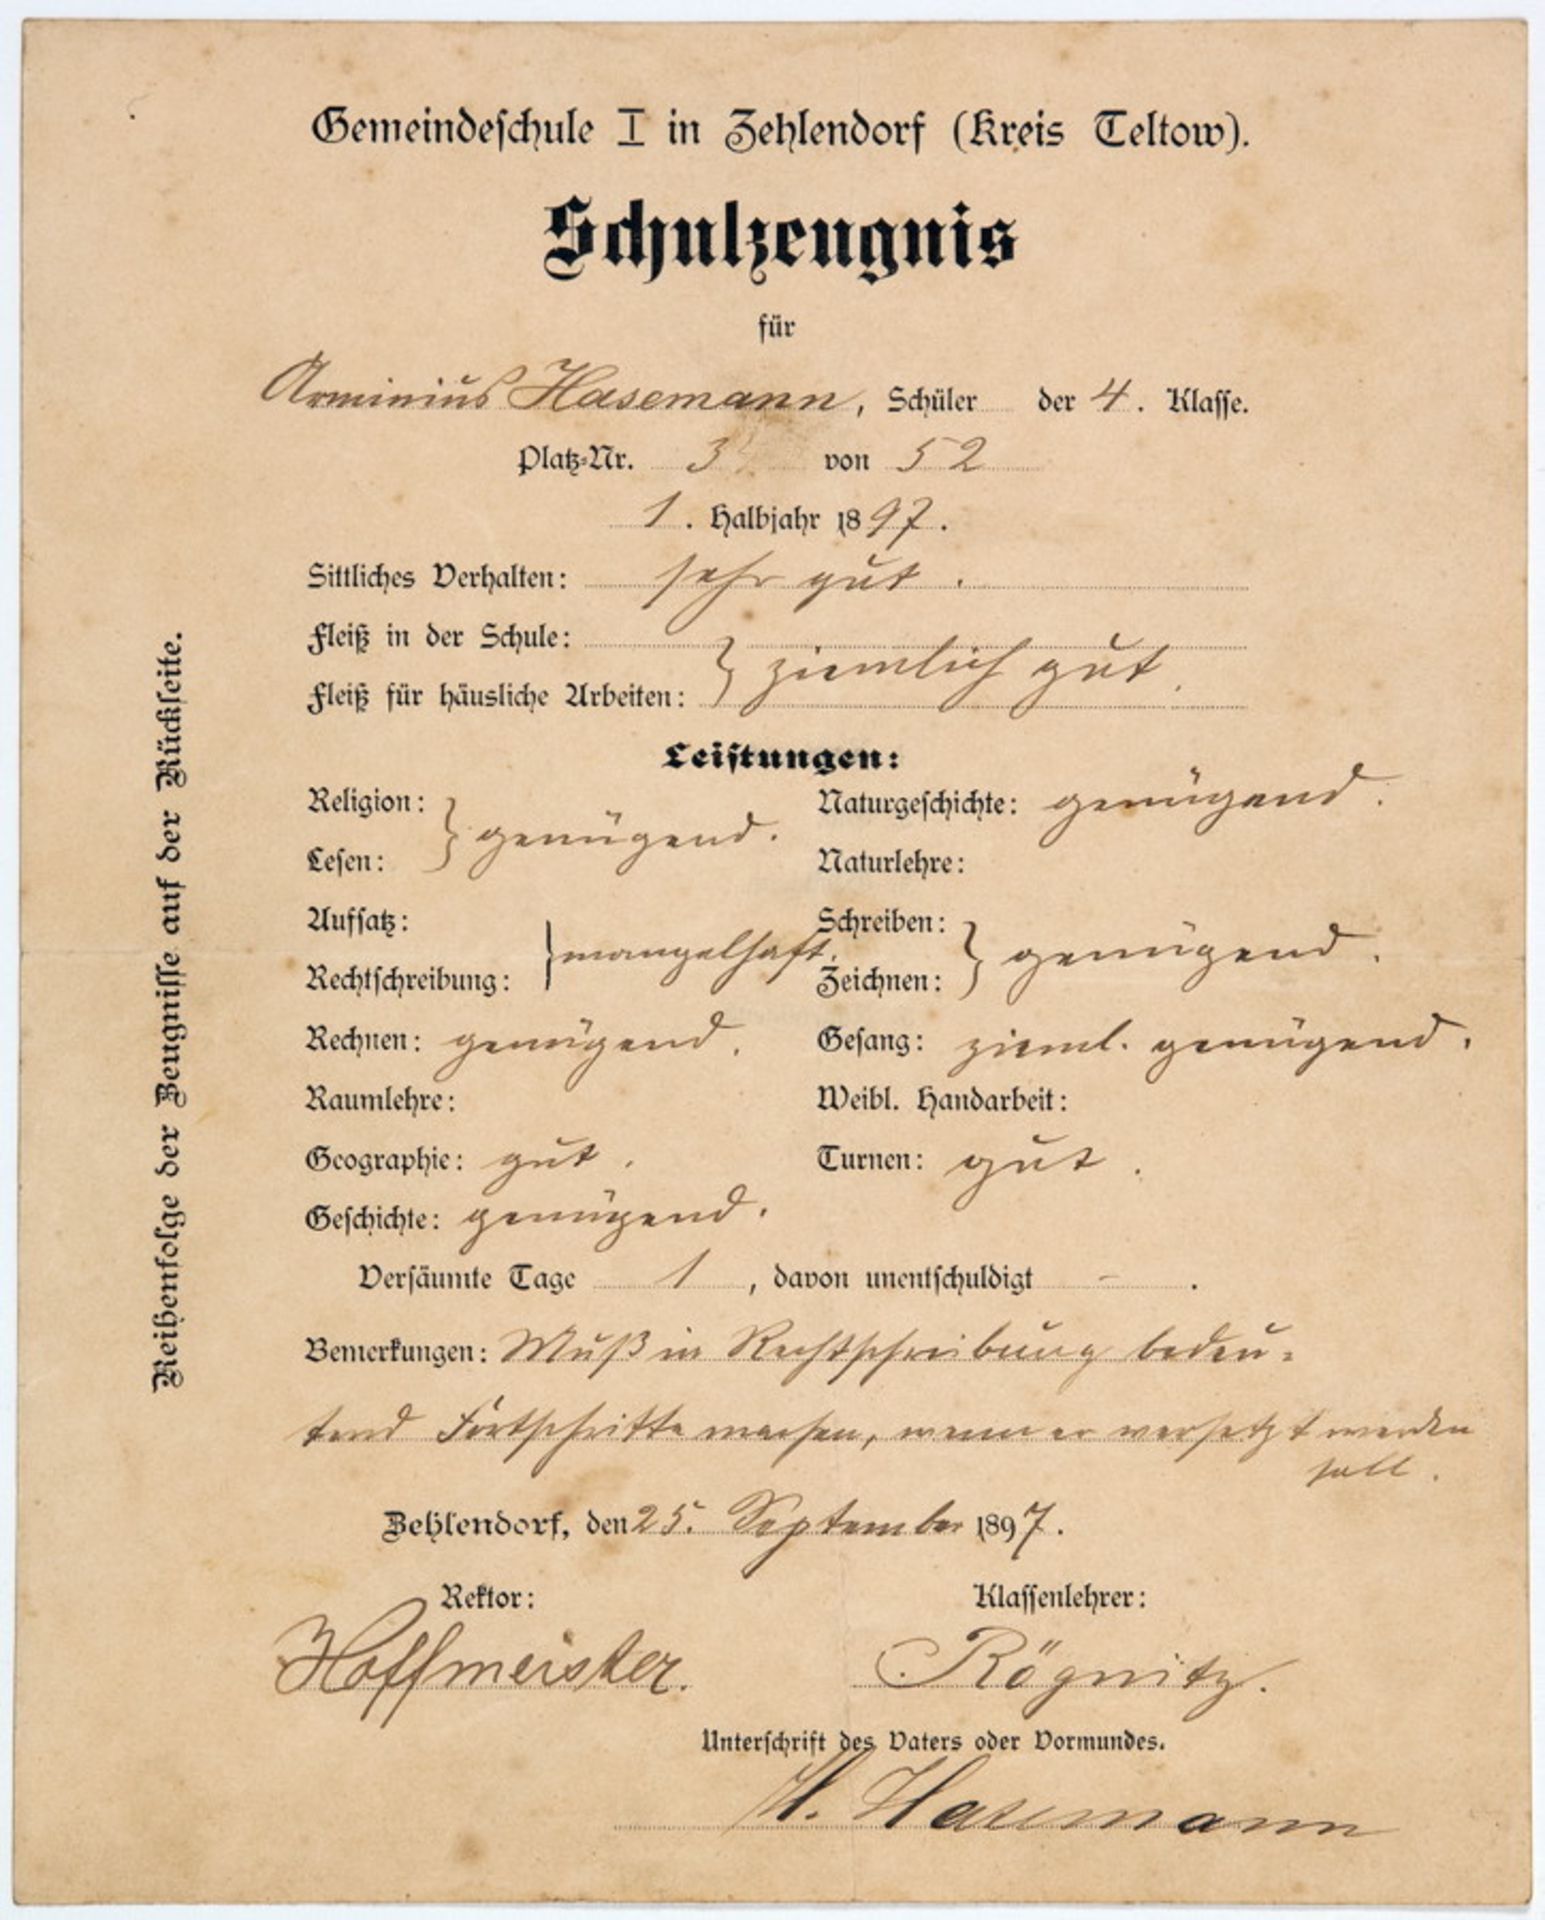 Gemeindeschule I in Zehlendorf (Kreis Teltow).
Schulzeugnis
für
Arminius Hasemann, Schüler der 4. Klasse.
Platz-Nr. 3 von 52
1. Halbjahr 1897.
Sittliches Verhalten: sehr gut.
Fleiß in der Schule:
Fleiß für häusliche Arbeiten: } ziemlich gut.
Leistungen:
Religion: Naturgeschichte: genügend.
} genügend.
Lesen: Naturlehre:
Aufsatz: Schreiben:
} mangelhaft. } genügend.
Rechtschreibung: Zeichnen:
Rechnen: genügend. Gesang: zieml. genügend.
Raumlehre: Weibl. Handarbeit:
Geographie: gut. Turnen: gut.
Geschichte: genügend.
Versäumte Tage 1, davon unentschuldigt -.
Bemerkungen: Muß in Rechtschreibung bedeu-
tend Fortschritte machen, wenn er versetzt werden
soll.
Zehlendorf, den 25. September 1897.
Rektor: Klassenlehrer:
Hoffmeister. Rögnitz.
Unterschrift des Vaters oder Vormundes.
H. Hasemann
Reihenfolge der Zeugnisse auf der Rückseite.